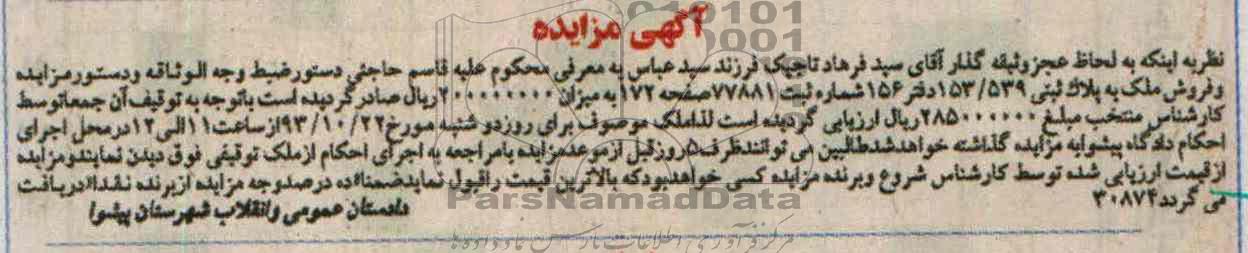 آگهی مزایده
نظر به اینکه به لحاظ عجز وثیقه گذار آقای سید فرهاد تاجیک فرزند سید عباس به معرفی محکوم علیه قاسم حاجتی دستور ضبط وجه الوثاقه و دستور مزایده
و فروش ملک به پلاک ثبتی ۱۵۳/۵۳۹ دفتر ۱۵۶ شماره ثبت ۷۷۸۸۱ صفحه ۱۷۲ به میزان ۲۰۰۰۰۰۰۰۰ ریال صادر گردیده است باتوجه به توقیف آن جمعا توسط
کارشناس منتخب مبلغ ۲۸۵۰۰۰۰۰۰ ریال ارزیابی گردیده است لذا ملک موصوف برای روز دو شنبه مورخ ۹۳/۱۰/۲۲ از ساعت ۱۱ الی ۱۲ در محل اجرای
احکام دادگاه پیشوا به مزایده گذاشته خواهد شد طالبین می توانند ظرف ۵ روز قبل از موعد مزایده بامراجعه به اجرای احکام از ملک توقیفی فوق دیدن نمایند و مزایده
از قیمت ارزیابی شده توسط کارشناس شروع و برنده مزایده کسی خواهد بود که بالاترین قیمت را قبول نماید ضمنا ده درصد وجه مزایده از برنده نقدا دریافت
می گردد ۳۰۸۷۴
دادستان عمومی و انقلاب شهرستان پیشوا
ParsNamadData
مرکز فرآوری اطلاعات پارس نماد داده ها